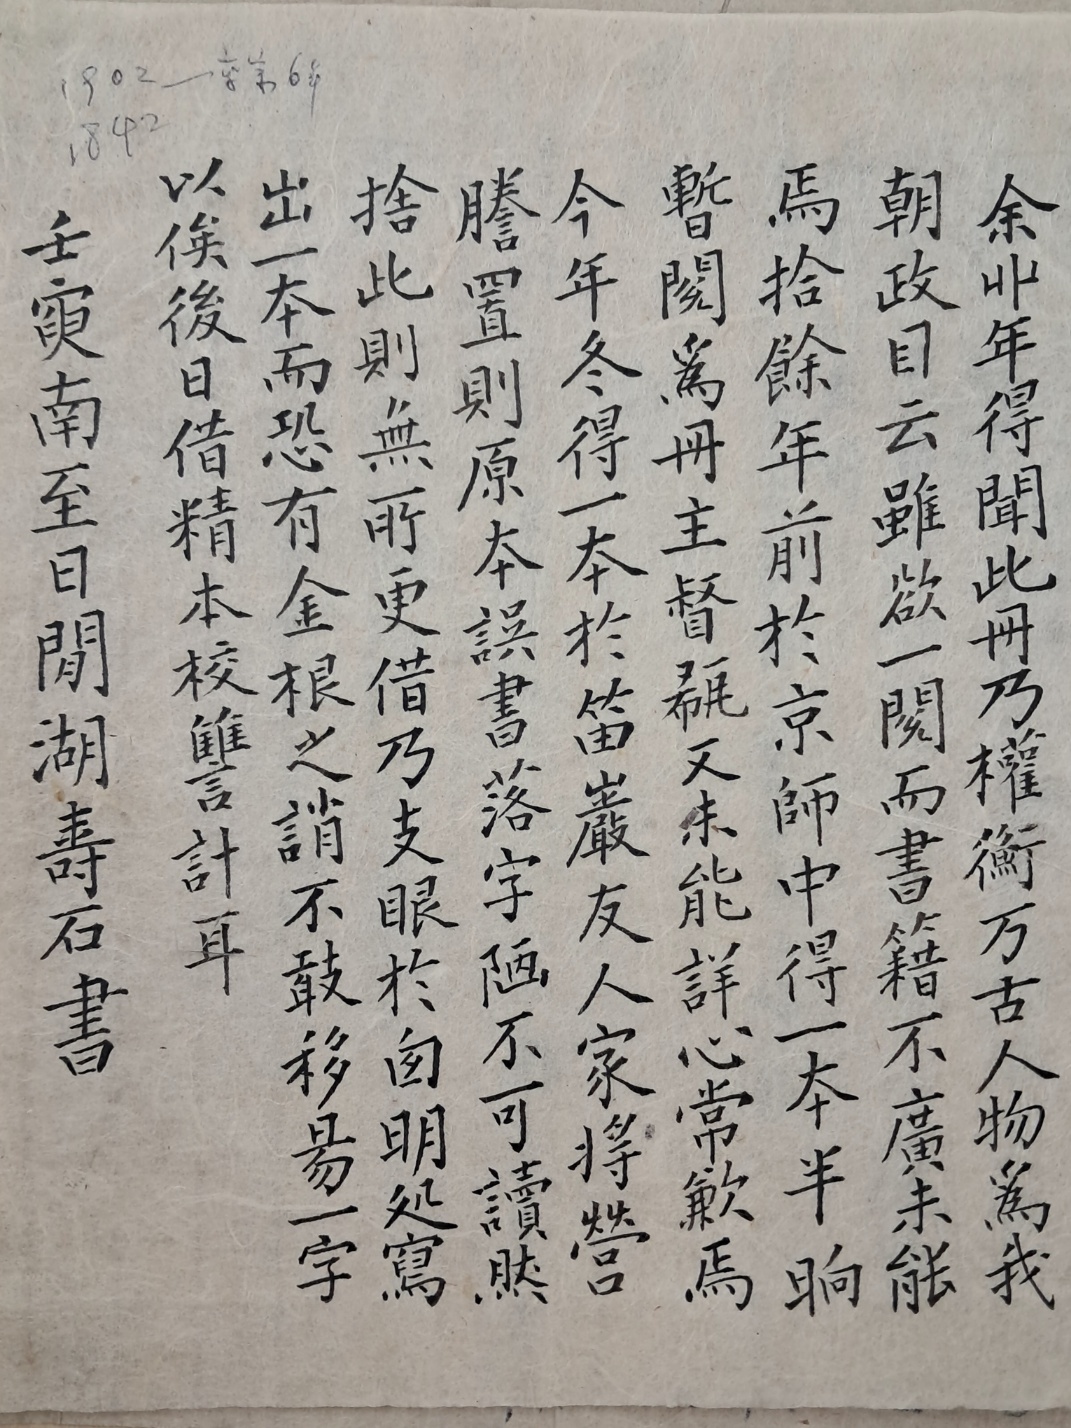 余丱年得聞此冊乃權衡万古人物爲我
朝政目云雖欲一閱而書籍不廣未能
焉拾餘年前於京師中得一本半晌
暫閱爲冊主督覶又未能詳心常歉焉
今年冬得一本於笛巖友人家將營
謄置則原本誤書落字陋不可讀然
捨此則無所更借乃支眼於囱明処寫
出一本而恐有金根之誚不敢移易一字
以俟後日借精本校讐計耳
壬寅南至日閒湖壽石書
1902
1842